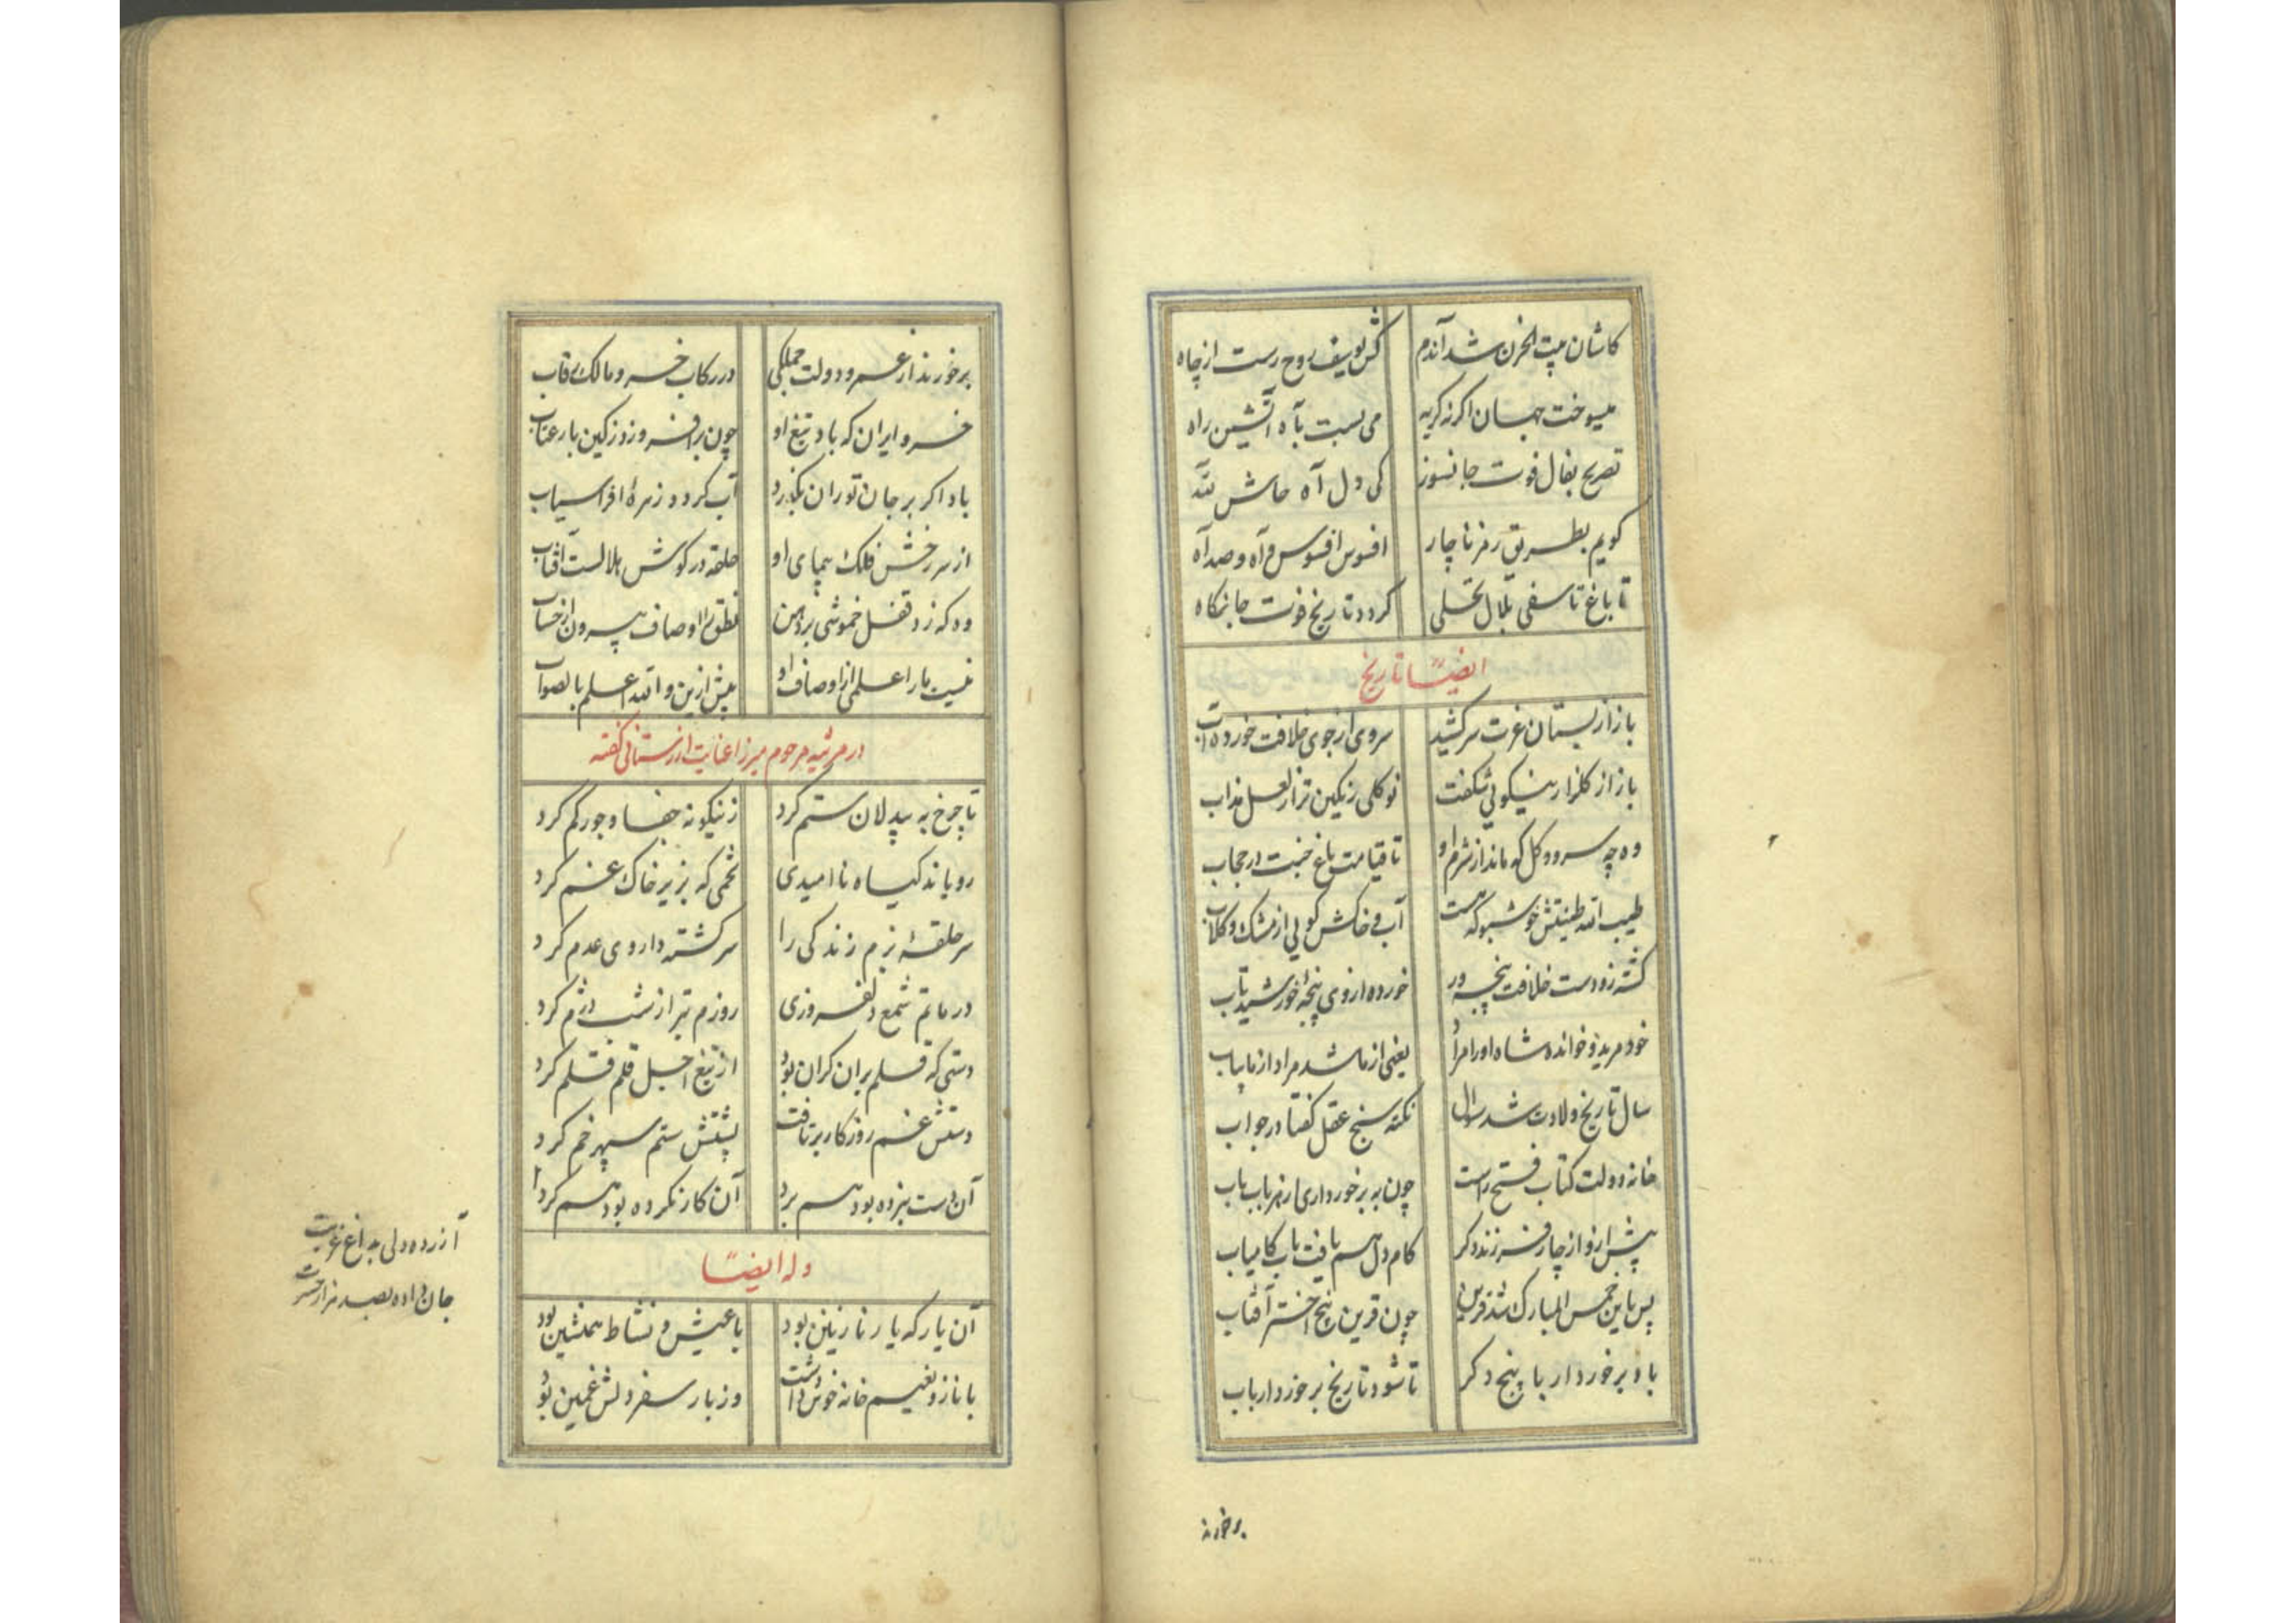 کاشان بیت الحزن شد آندم کش یوسف روح رست از چاه
میسوخت جهان اگر نه گریه می بست بآه آتشین راه
تصریح بفال فوت جانسوز کی دل آه حاش لله
کویم بطریق رمز ناچار افسوس افسوس و آه و صد آه
تا باغ تاسفی بلال تحلی کردد تاریخ فوت جانکاه
ایضاً تاریخ
باز از بستان عزت سر کشید سروی از جوی خلافت خورده آب
باز از کلزار نیکویی شکفت نو کلی رنکین تر از لعل مذاب
وه چه سرو و کل که ماند از شرم او تا قیامت باغ جنت در حجاب
طیب الله طینتش خوشبو که هست آب و خاکش کویی از مشک و کلاب
کشته زو دست خلافت پنجه ور خورده از وی پنجهٔ خورشید تاب
خود مرید و خوانده شاه او را مراد یعنی از ما شد مراد از ما بیاب
سال تاریخ ولادت شد سؤال نکته سنج عقل کفتا در جواب
خانه دولت کتاب فتح راست چون به برخورداری از هر باب باب
پیش ازو از چار فرزند دکر کام دل هم یافت باب کامیاب
پس باین خمس المبارک شد قرین چون قرین پنج اختر آفتاب
باد برخوردار با پنج دکر تا شود تاریخ برخوردار باب
برخورند
برخورند از عمر و دولت جملکی در رکاب خسرو مالک رقاب
خسرو ایران که باد تیغ او چون برافروزد ز کین بار عتاب
باد اکر بر جان توران بگذرد آب کردد زهرهٔ افراسیاب
از سر رخش فلک پیمای او حلقه در کوش هلالست آفتاب
وه که زد قفل خموشی بر دهن نطقم را اوصاف بیرون از حساب
نیست ما را علمی از اوصاف او بیش ازین و الله اعلم بالصواب
در مرثیه مرحوم میرزا عنایت اردستانی کفته
تا چرخ به بیدلان ستم کرد زینکونه جفا و جور کم کرد
رویاند کیاه ناامیدی تخمی که بزیر خاک غم کرد
سر حلقهٔ بزم زندکی را سرکشته داروی عدم کرد
در ماتم شمع دلفروزی روزم بتر از شب دژم کرد
دستی که قلم بران کران بود از تیغ اجل قلم قلم کرد
دستش غم روزکار برتافت پشتش ستم سپهر خم کرد
آن دست نبرده بود هم برد آن کار نکرده بود هم کرد
وله ایضاً
آن یار که یار نازنین بود با عیش و نشاط همنشین بود
با ناز و نعیم خانه خوش داشت وز بار سفر دلش غمین بود
آزرده دلی به داغ غربت
جان داده بصد هزار حسرت